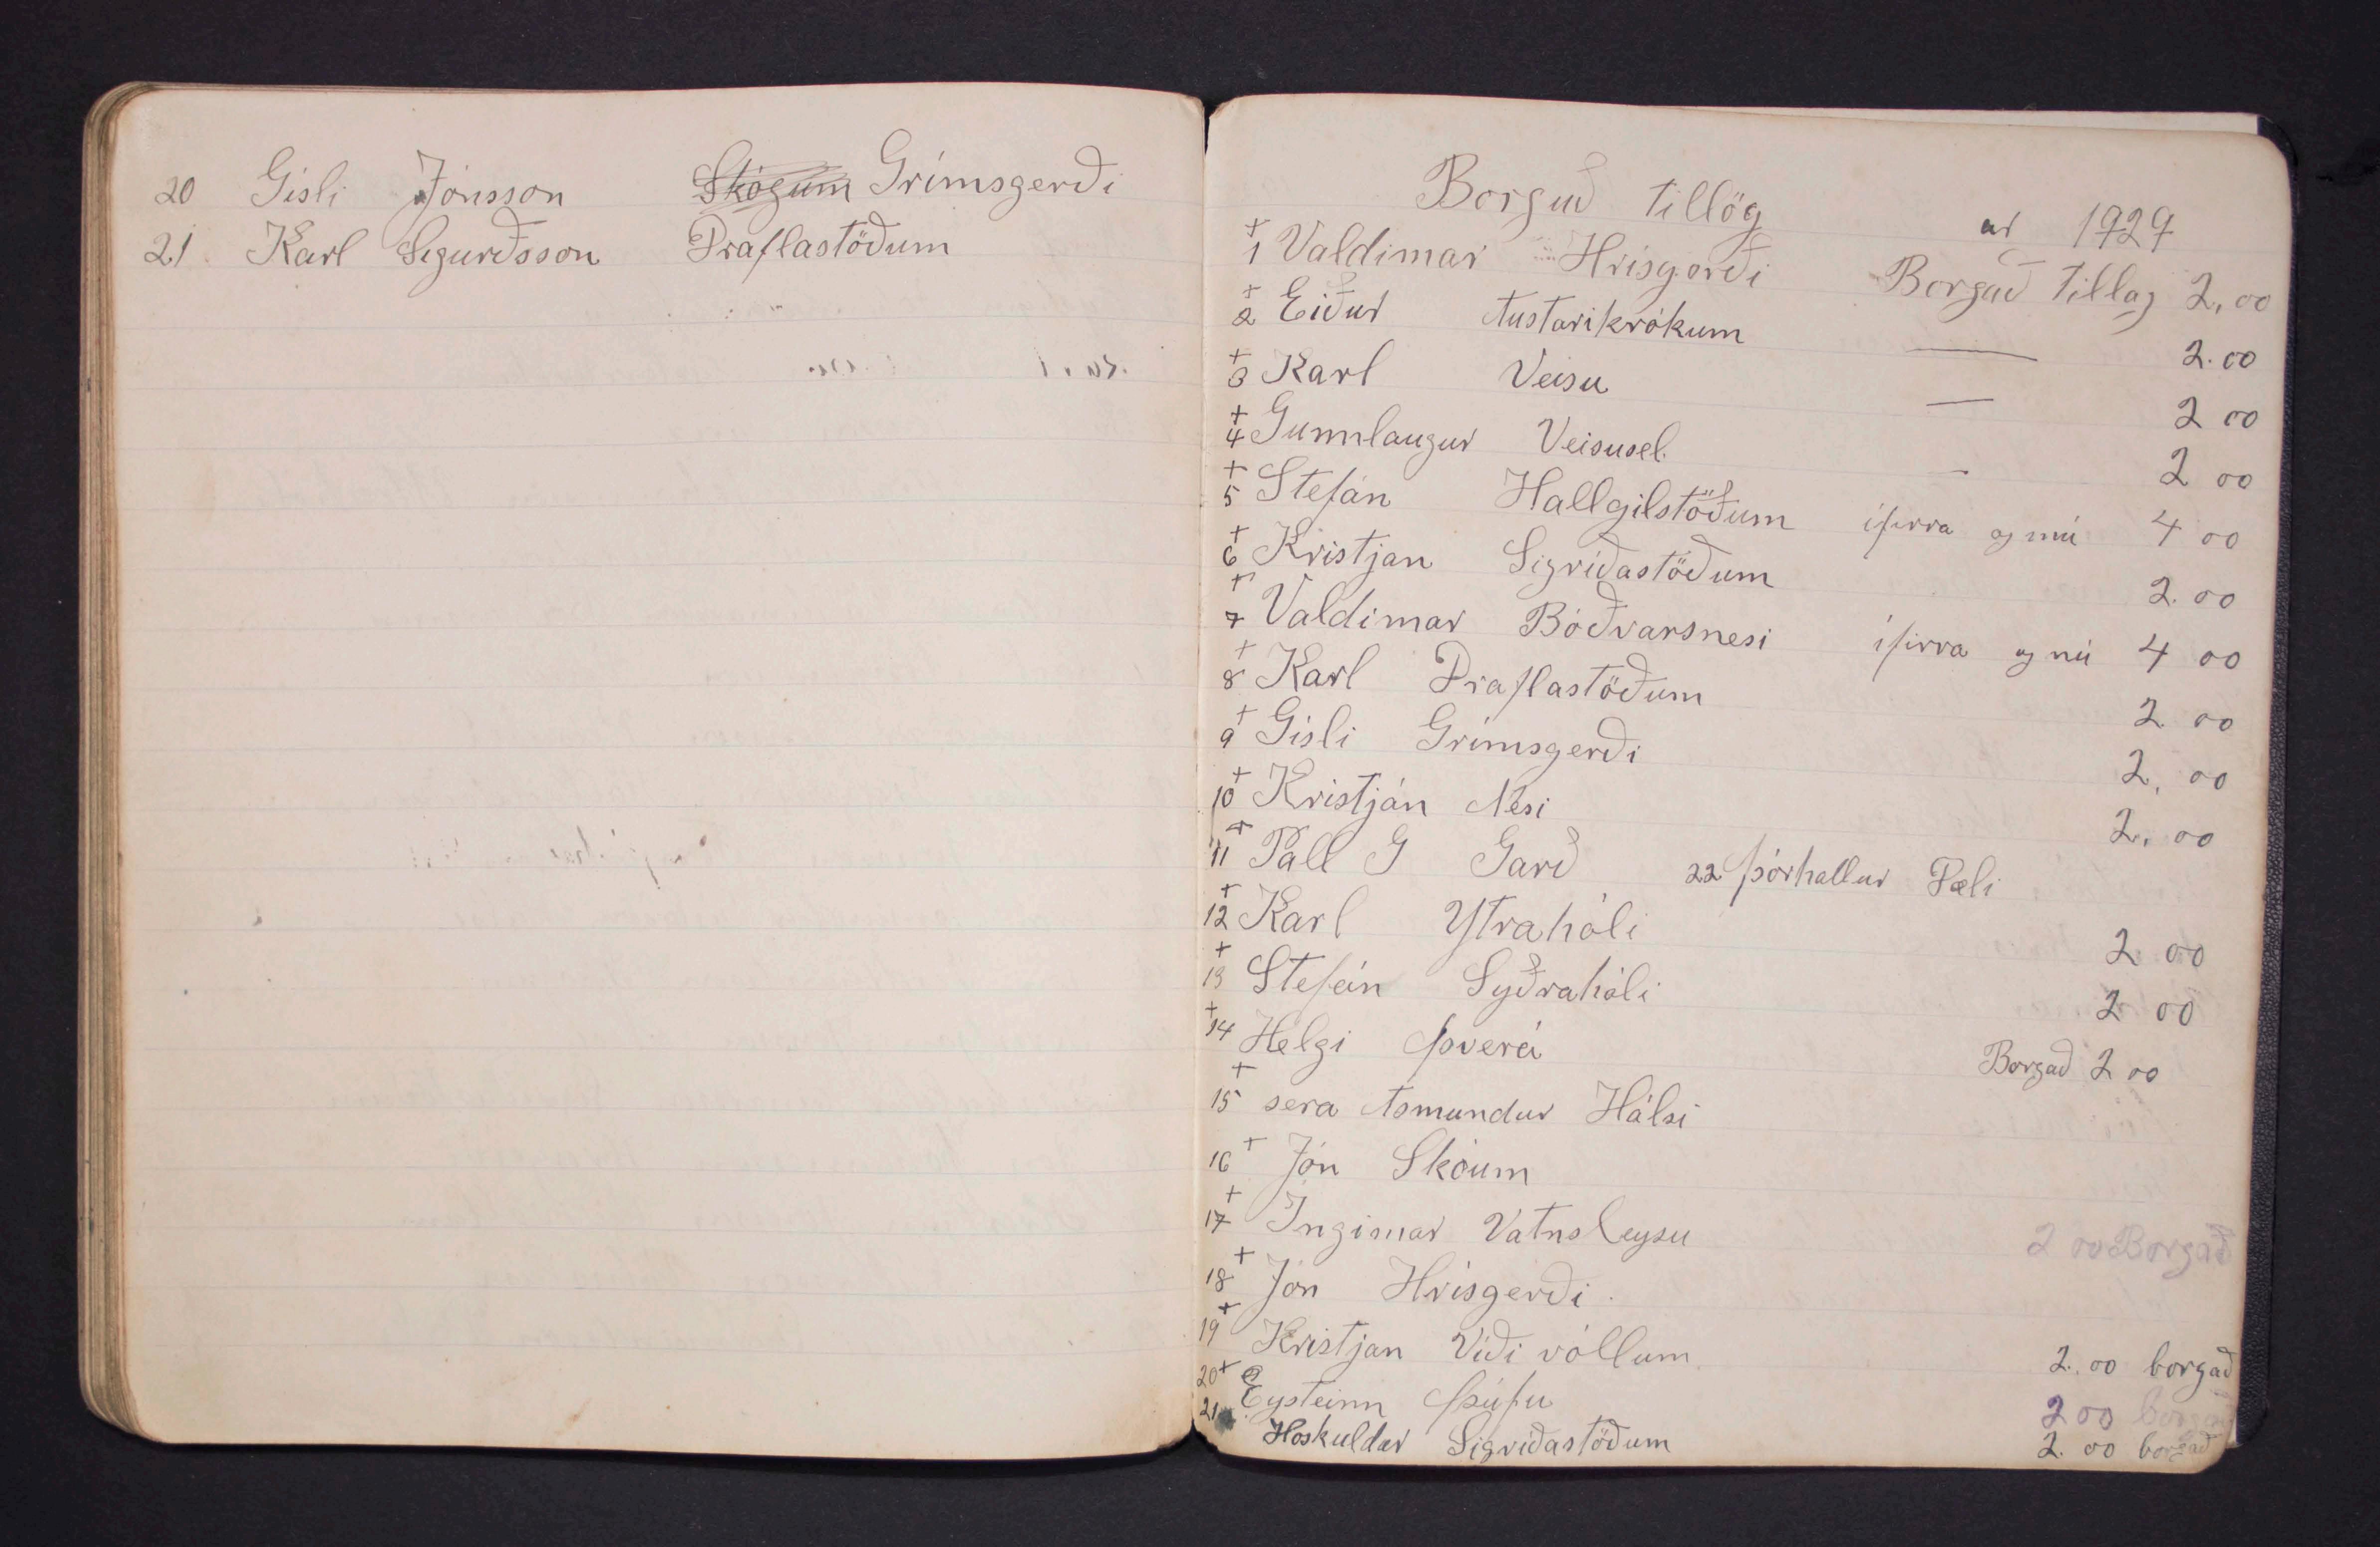 20 Gísli Jónsson Skógum Grímsgerði
21 Karl Sigurðsson Draflastöðum
Borguð tillög ar 1929
+ 1 Valdimar Hrisgerði Borgað tillag 2,00
+ 2 Eiður Austarikrókum — 2.00
+ 3 Karl Veisu — 2 00
+ 4 Gunnlaugur Veisusel. — 2 00
+ 5 Stefán Hallgilstöðum ífirra og nú 4 00
+ 6 Kristjan Sigríðastöðum 2.00
+ 7 Valdimar Böðvarsnesi ífirra og nú 4 00
+ 8 Karl Draflastöðum 2 00
+ 9 Gísli Grímsgerði 2,00
+ 10 Kristján Nesi 2,00
+ 11 Páll G Garð 22 Þórhallur Pæli
+ 12 Karl Ytrahóli 2 00
+ 13 Stefán Syðrahóli 2 00
+ 14 Helgi Þverá Borgað 2 00
+ 15 sera Asmundur Hálsi
16 + Jón Skóum
+ 17 Ingimar Vatnsleysu 2 00 Borgað
+ 18 Jón Hrísgerði.
+ 19 Kristjan Víði völlum 2.00 borgað
20 + Eysteinn Þúfu 2 00 borgað
21 Hoskuldur Sigríðastöðum 2.00 borgað